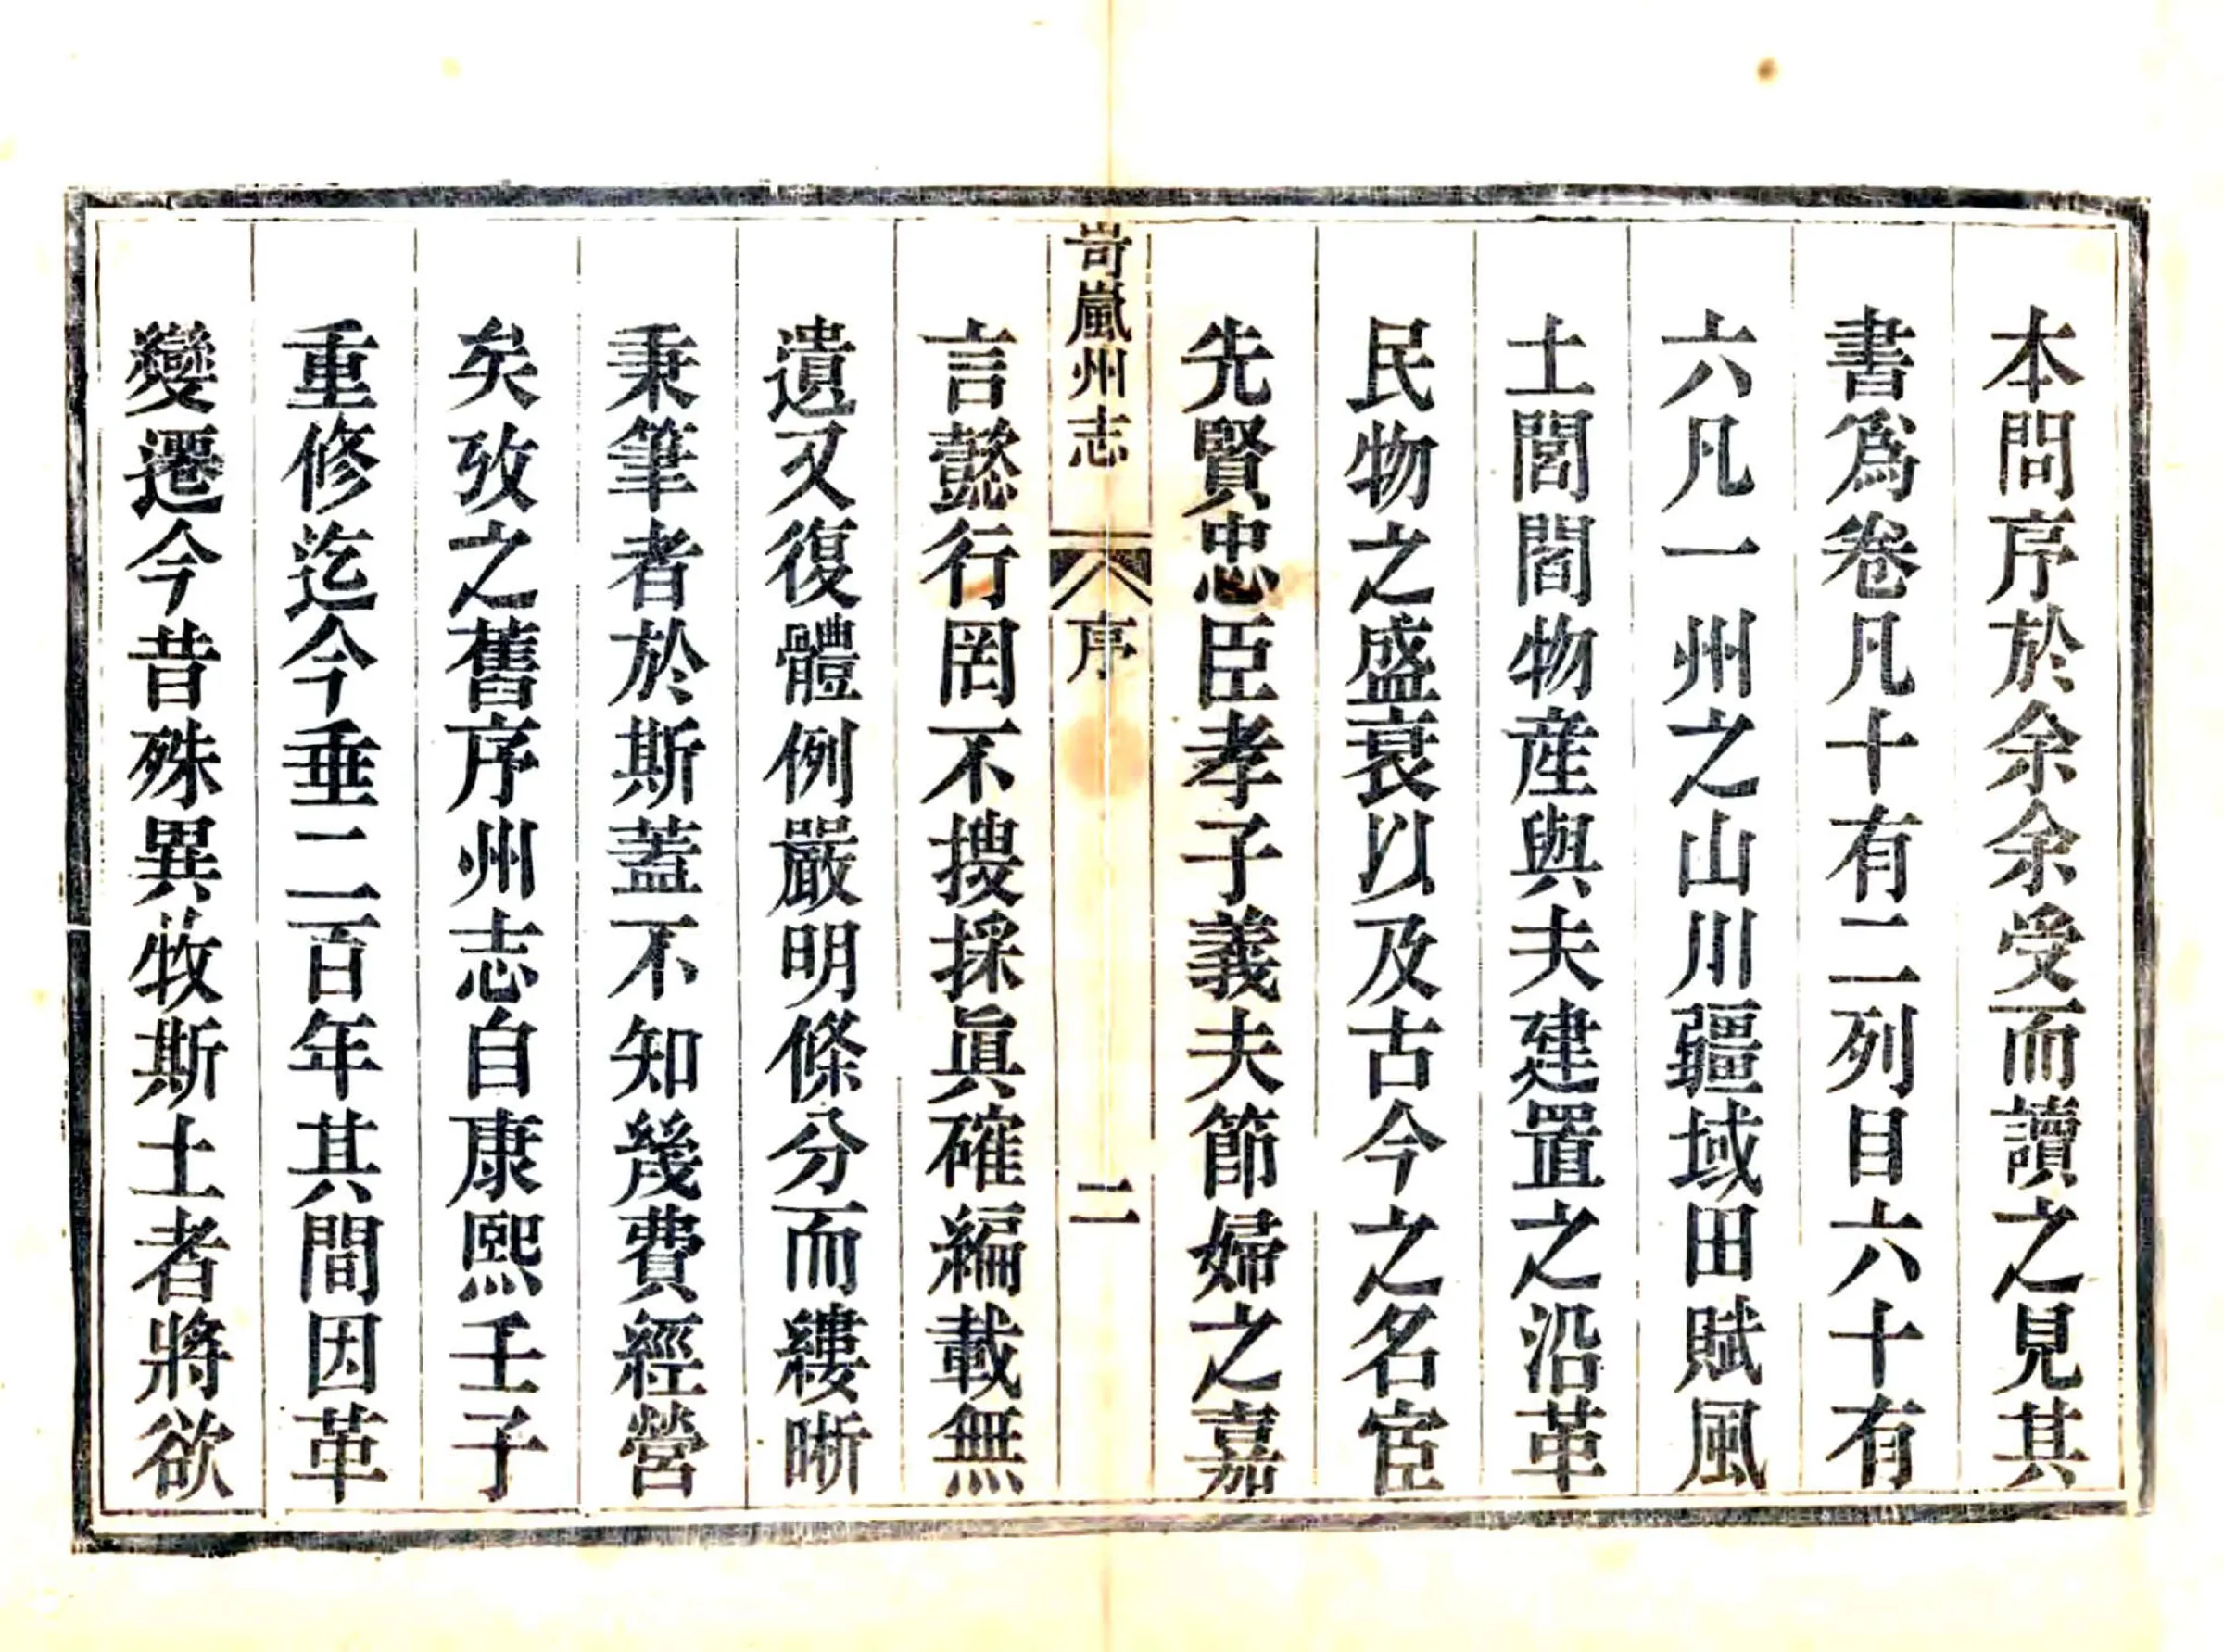 本問序於余余受而讀之見其
書爲卷凡十有二列目六十有
六凡一州之山川疆域田賦風
土閭閻物産與夫建置之沿革
民物之盛衰以及古今之名宦
先賢忠臣孝子義夫節婦之嘉
岢嵐州志 序 二
言懿行罔不搜採眞確編載無
遺又復體例嚴明條分而縷晰
秉筆者於斯蓋不知幾費經營
矣攷之舊序州志自康熙壬子
重修迄今垂二百年其間因革
變遷今昔殊異牧斯土者將欲